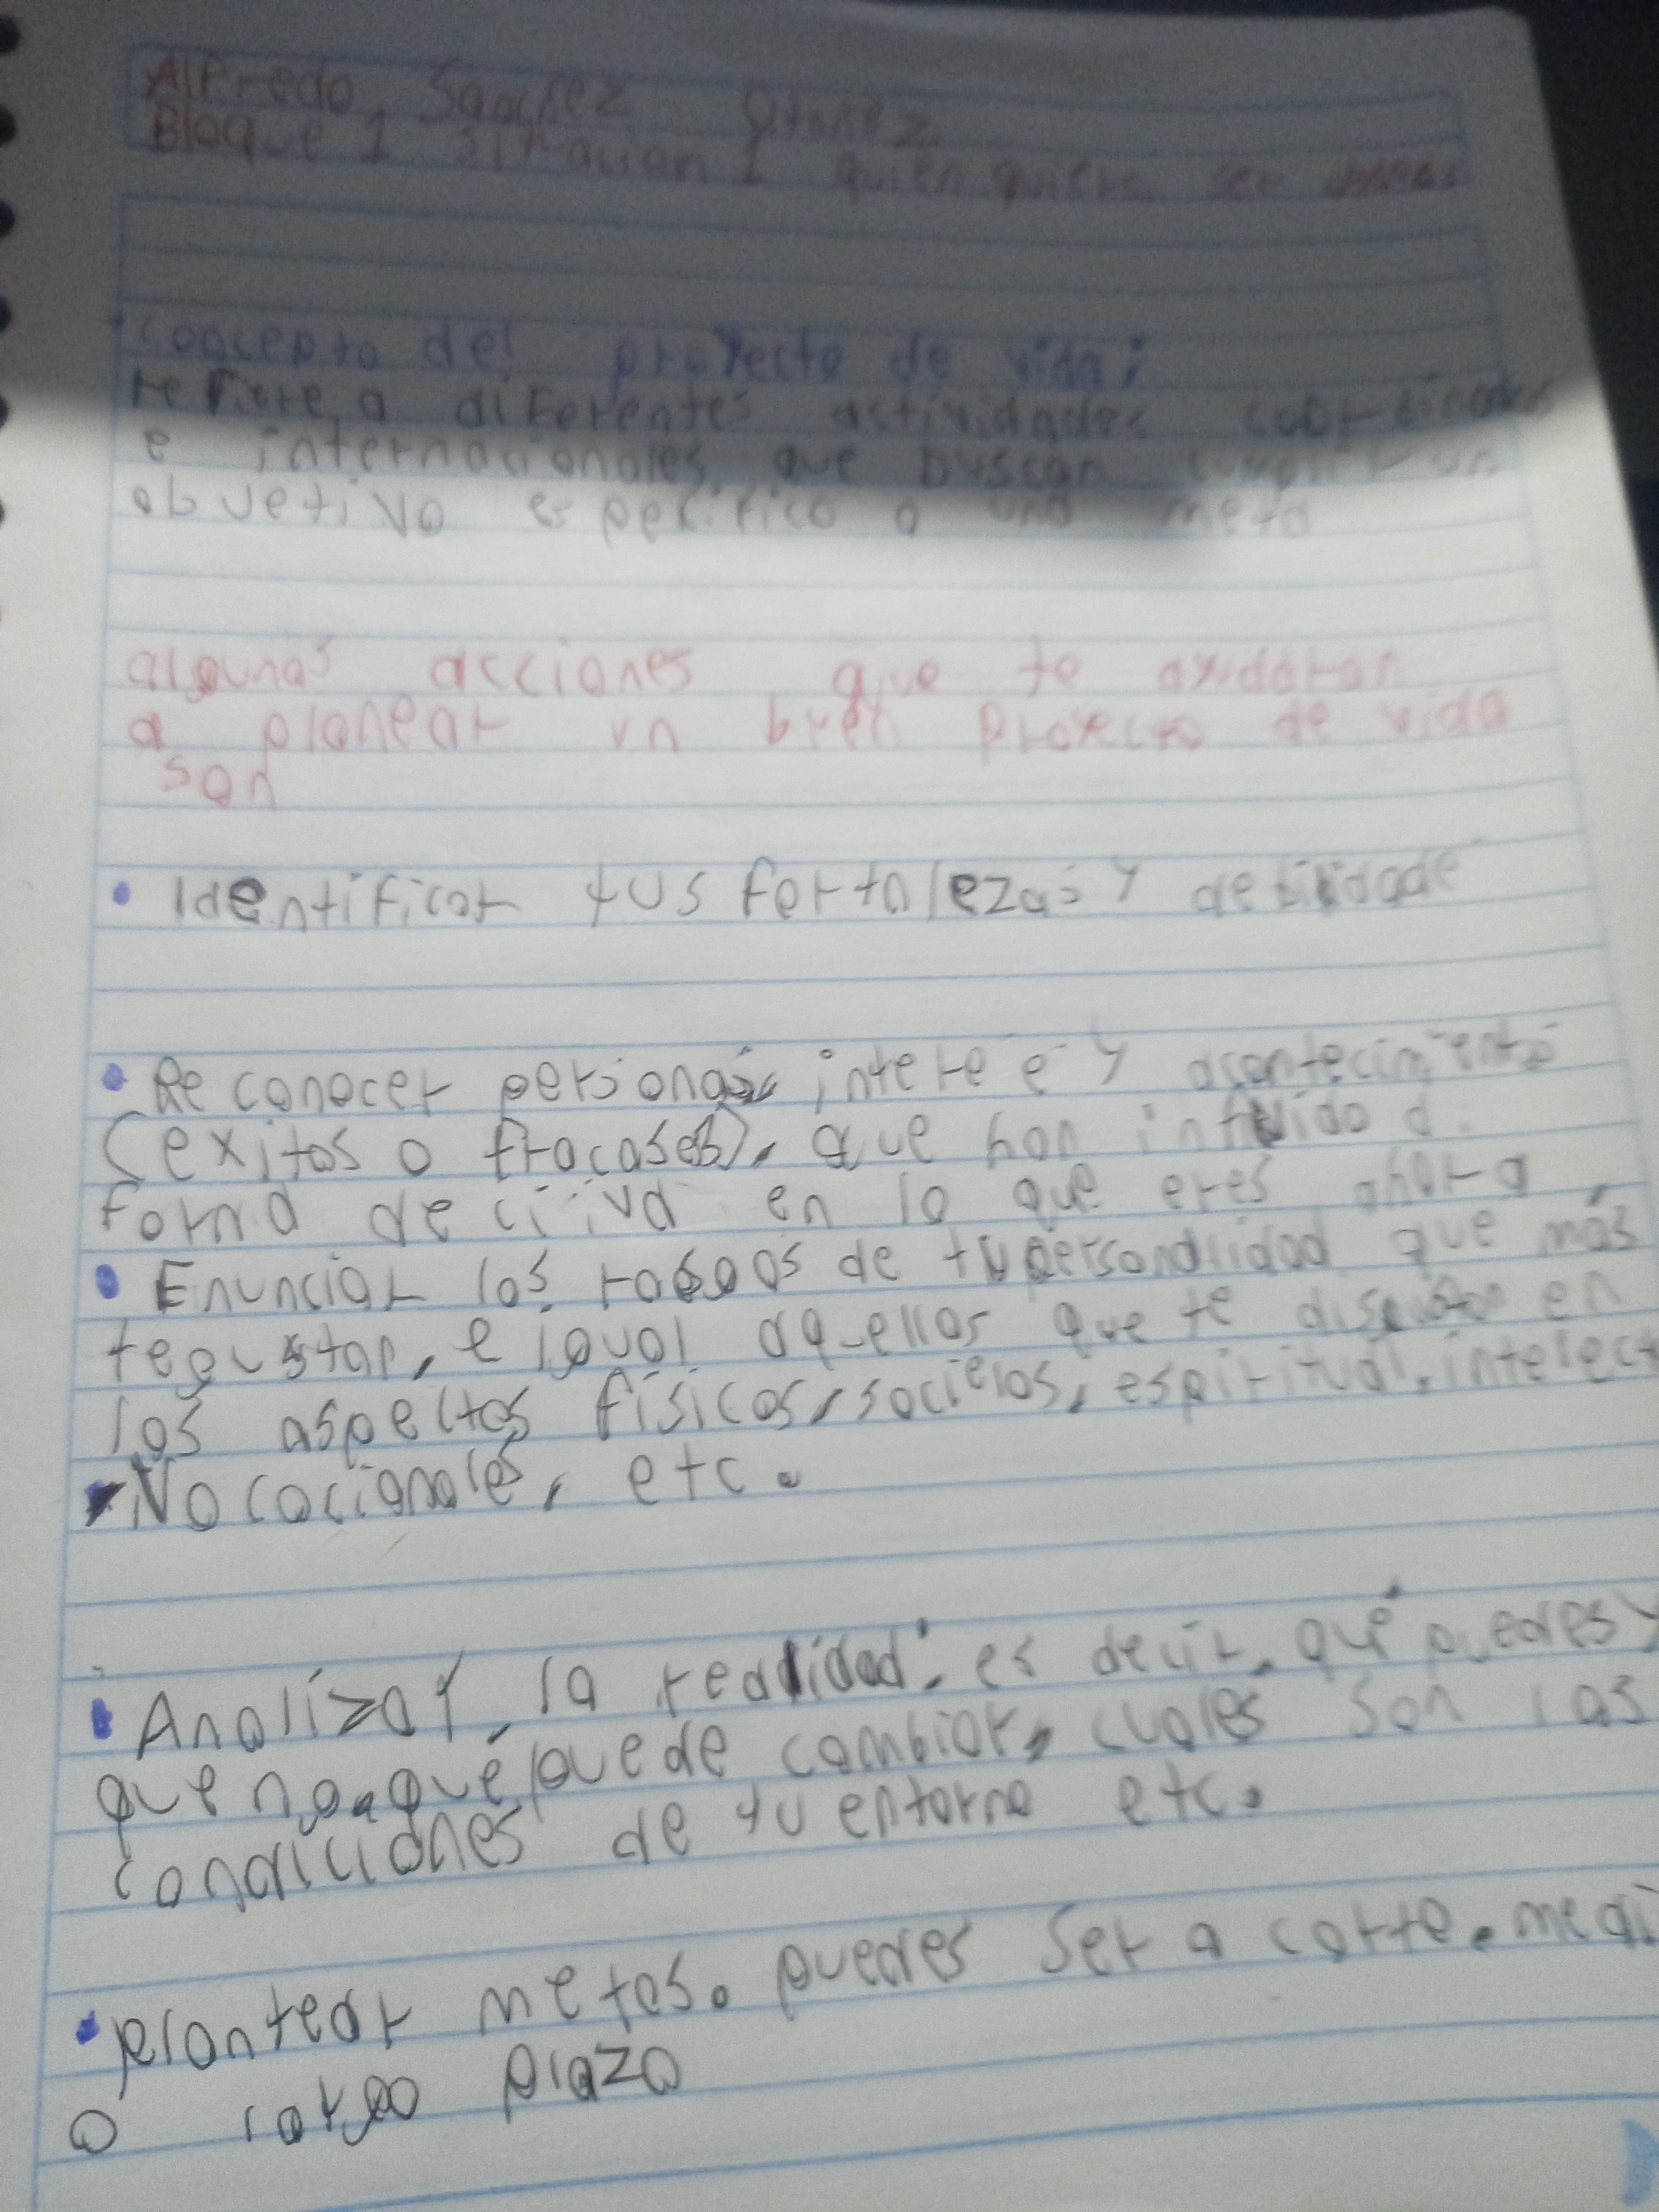 Alfredo Sanchez
Bloque 1 situacion 1 quien quiere ser
concepto del proyecto de vida;
refiere a diferentes actividades coordinadas
e internacionales que buscan cumplir un
obvetivo especifico o una meta
algunas acciones que te ayudaran
a planear un buen proyecto de vida
son
• Identificar tus fortalezas y debilidade
• Reconocer personas, intere e y acontecimiento
(exitos o fracases), que han influido d
forma deciiva en lo que eres ahora
• Enunciar los rasgos de tu personalidad que más
tegustan, e igual aquellos que te disgustan en
los aspectos físicos, socielos, espiritual, intelect
Vocacionales, etc.
• Analizar, la realidad: es decir, qué puedes y
que no, qué puede cambiar, cuales son las
condiciones de tu entorno etc.
• plantear metas. puedes ser a corto, medi
o largo plazo